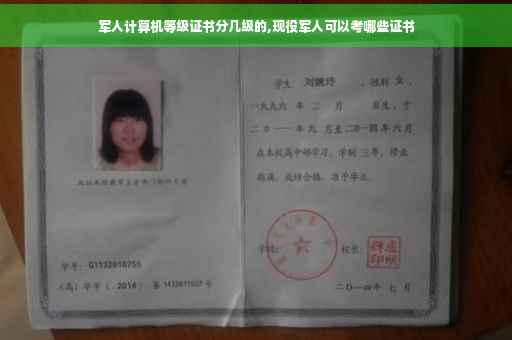 军人计算机等级证书分几级的,现役军人可以考哪些证书
学生 刘婉玲 ，性别 女 ，
一九九六 年 二 月 日生，于
二〇一一年九 月至二〇一四年六月
在本校高中部学习，学制 三年，修业
期满，成绩合格，准予毕业。
学号：G1132010755
学校：
校长：
（高）毕字（ 2014 ）第 1432011027 号
二〇一四年 七 月